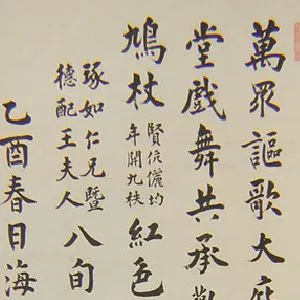 萬眾謳歌大
堂戲舞共承
鳩杖
賢伉儷均
年開九秩
紅色
琢如仁兄暨
德配王夫人
八旬
乙酉春日海